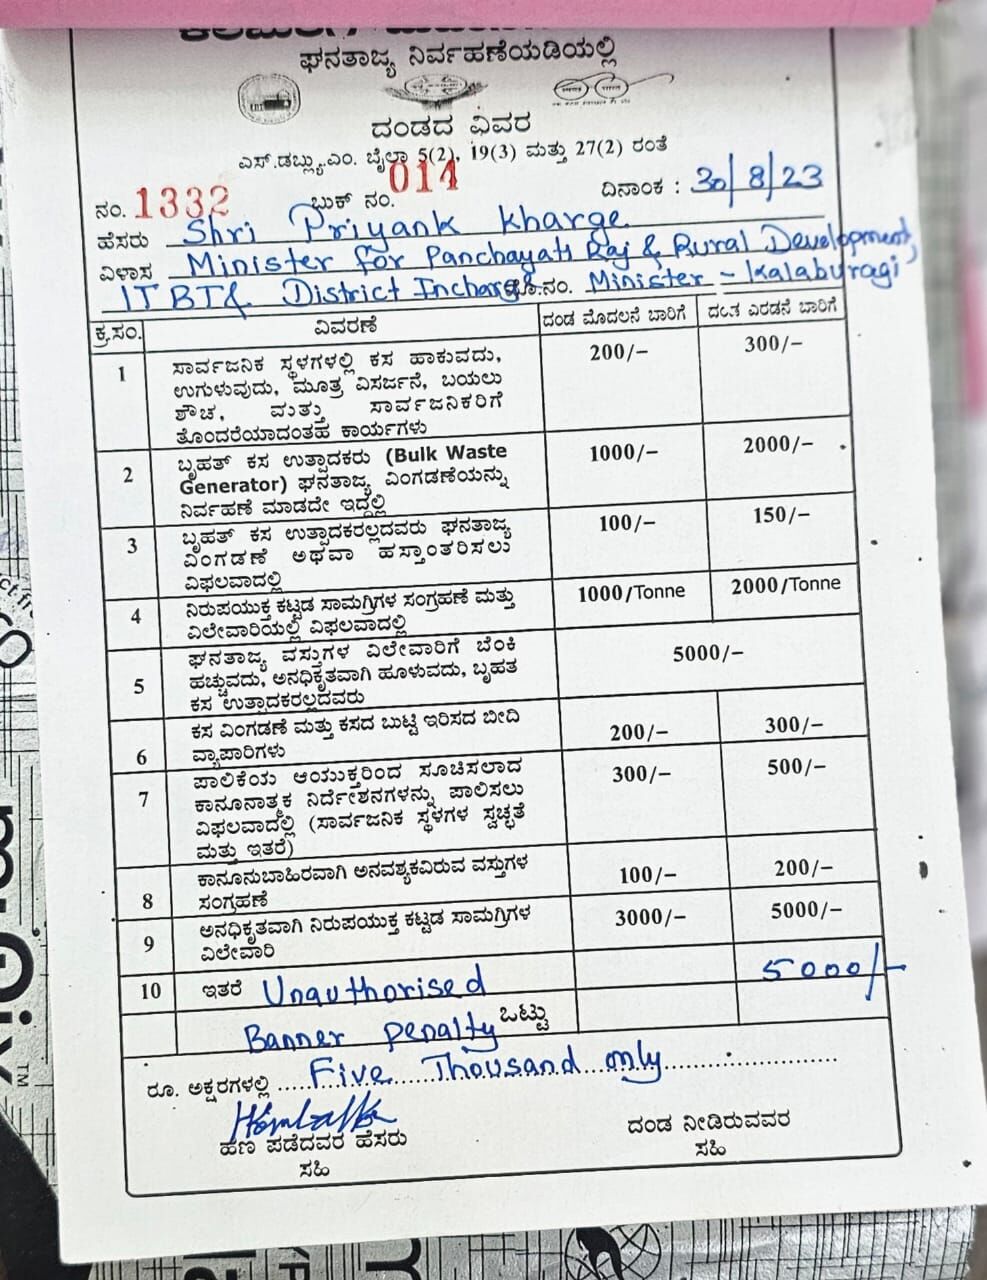 ಘನತಾಜ್ಯ ನಿರ್ವಹಣೆಯಡಿಯಲ್ಲಿ
ದಂಡದ ವಿವರ
ಎಸ್.ಡಬ್ಲ್ಯು.ಎಂ. ಬೈಲಾ 5(2), 19(3) ಮತ್ತು 27(2) ರಂತೆ
ನಂ. 1332 ಬುಕ್ ನಂ. 014 ದಿನಾಂಕ : 30/8/23
ಹೆಸರು Shri Priyank Kharge
ವಿಳಾಸ Minister for Panchayati Raj & Rural Development,
IT BT & District Incharge ನಂ. Minister - Kalaburagi
ಕ್ರ.ಸಂ. ವಿವರಣೆ ದಂಡ ಮೊದಲನೆ ಬಾರಿಗೆ ದಂಡ ಎರಡನೆ ಬಾರಿಗೆ
1 ಸಾರ್ವಜನಿಕ ಸ್ಥಳಗಳಲ್ಲಿ ಕಸ ಹಾಕುವದು, 200/- 300/-
ಉಗುಳುವುದು, ಮೂತ್ರ ವಿಸರ್ಜನೆ, ಬಯಲು
ಶೌಚ, ಮತ್ತು ಸಾರ್ವಜನಿಕರಿಗೆ
ತೊಂದರೆಯಾದಂತಹ ಕಾರ್ಯಗಳು
2 ಬೃಹತ್ ಕಸ ಉತ್ಪಾದಕರು (Bulk Waste 1000/- 2000/-
Generator) ಘನತಾಜ್ಯ ವಿಂಗಡಣೆಯನ್ನು
ನಿರ್ವಹಣೆ ಮಾಡದೇ ಇದ್ದಲ್ಲಿ
3 ಬೃಹತ್ ಕಸ ಉತ್ಪಾದಕರಲ್ಲದವರು ಘನತಾಜ್ಯ 100/- 150/-
ವಿಂಗಡಣೆ ಅಥವಾ ಹಸ್ತಾಂತರಿಸಲು
ವಿಫಲವಾದಲ್ಲಿ
4 ನಿರುಪಯುಕ್ತ ಕಟ್ಟಡ ಸಾಮಗ್ರಿಗಳ ಸಂಗ್ರಹಣೆ ಮತ್ತು 1000/Tonne 2000/Tonne
ವಿಲೇವಾರಿಯಲ್ಲಿ ವಿಫಲವಾದಲ್ಲಿ
5 ಘನತಾಜ್ಯ ವಸ್ತುಗಳ ವಿಲೇವಾರಿಗೆ ಬೆಂಕಿ 5000/-
ಹಚ್ಚುವದು, ಅನಧಿಕೃತವಾಗಿ ಹೂಳುವದು, ಬೃಹತ
ಕಸ ಉತ್ಪಾದಕರಲ್ಲದವರು
6 ಕಸ ವಿಂಗಡಣೆ ಮತ್ತು ಕಸದ ಬುಟ್ಟಿ ಇರಿಸದ ಬೀದಿ 200/- 300/-
ವ್ಯಾಪಾರಿಗಳು
7 ಪಾಲಿಕೆಯ ಆಯುಕ್ತರಿಂದ ಸೂಚಿಸಲಾದ 300/- 500/-
ಕಾನೂನಾತ್ಮಕ ನಿರ್ದೇಶನಗಳನ್ನು ಪಾಲಿಸಲು
ವಿಫಲವಾದಲ್ಲಿ (ಸಾರ್ವಜನಿಕ ಸ್ಥಳಗಳ ಸ್ವಚ್ಛತೆ
ಮತ್ತು ಇತರೆ)
8 ಕಾನೂನುಬಾಹಿರವಾಗಿ ಅನವಶ್ಯಕವಿರುವ ವಸ್ತುಗಳ 100/- 200/-
ಸಂಗ್ರಹಣೆ
9 ಅನಧಿಕೃತವಾಗಿ ನಿರುಪಯುಕ್ತ ಕಟ್ಟಡ ಸಾಮಗ್ರಿಗಳ 3000/- 5000/-
ವಿಲೇವಾರಿ
10 ಇತರೆ Unauthorised 5000/-
Banner Penalty ಒಟ್ಟು
ರೂ. ಅಕ್ಷರಗಳಲ್ಲಿ Five Thousand only
ಹಣ ಪಡೆದವರ ಹೆಸರು ದಂಡ ನೀಡಿರುವವರ
ಸಹಿ ಸಹಿ